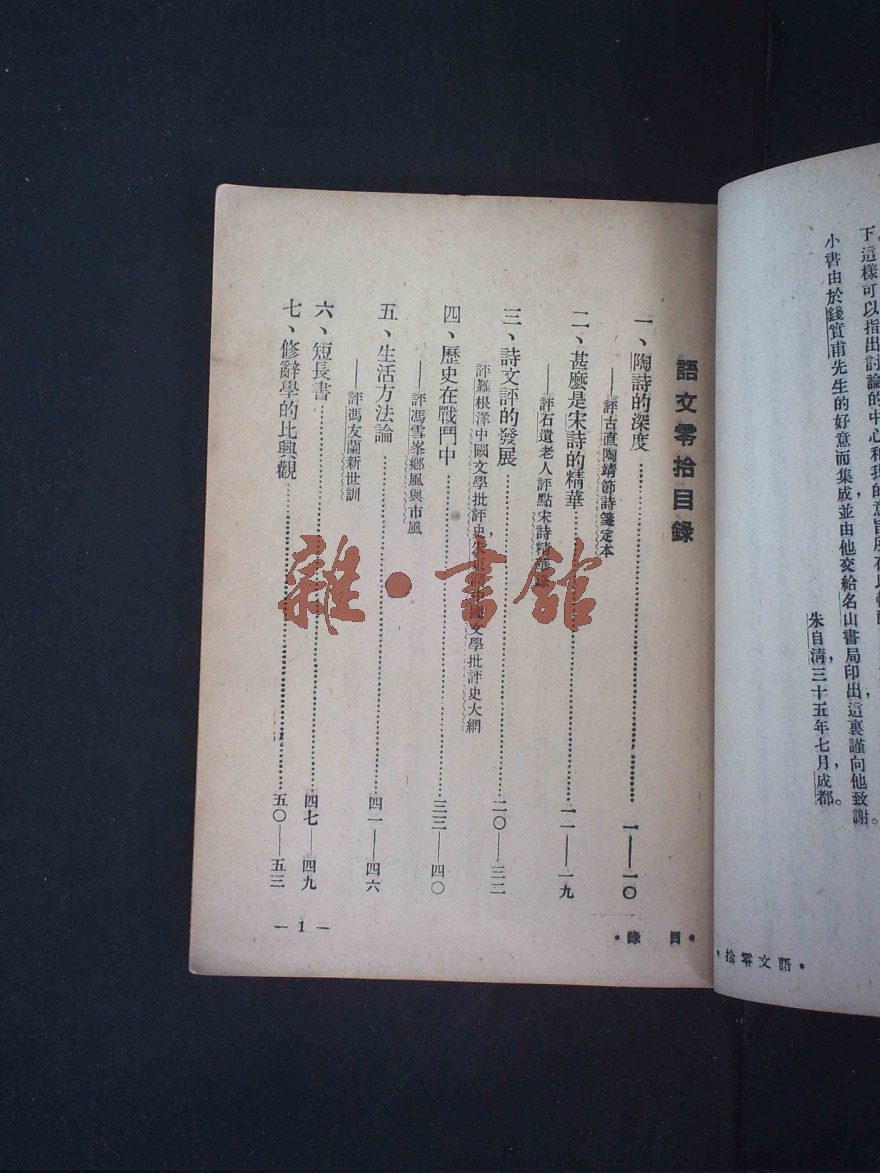 下這樣可以指出討論的中心和我的意旨所在
小書由於錢實甫先生的好意而集成並由他交給名山書局印出這裏謹向他致謝。
朱自淸，三十五年七月，成都。
• 語文零拾 •
語文零拾目錄
一、陶詩的深度……一——一〇
——評古直陶靖節詩箋定本
二、甚麽是宋詩的精華……一一——一九
——評石遺老人評點宋詩精華錄
三、詩文評的發展……二〇——三二
評羅根澤中國文學批評史，朱東潤中國文學批評史大綱
四、歷史在戰鬥中……三三——四〇
——評馮雪峯鄉風與市風
五、生活方法論……四一——四六
——評馮友蘭新世訓
六、短長書……四七——四九
七、修辭學的比興觀……五〇——五三
• 目錄 •
— 1 —
雜·書館